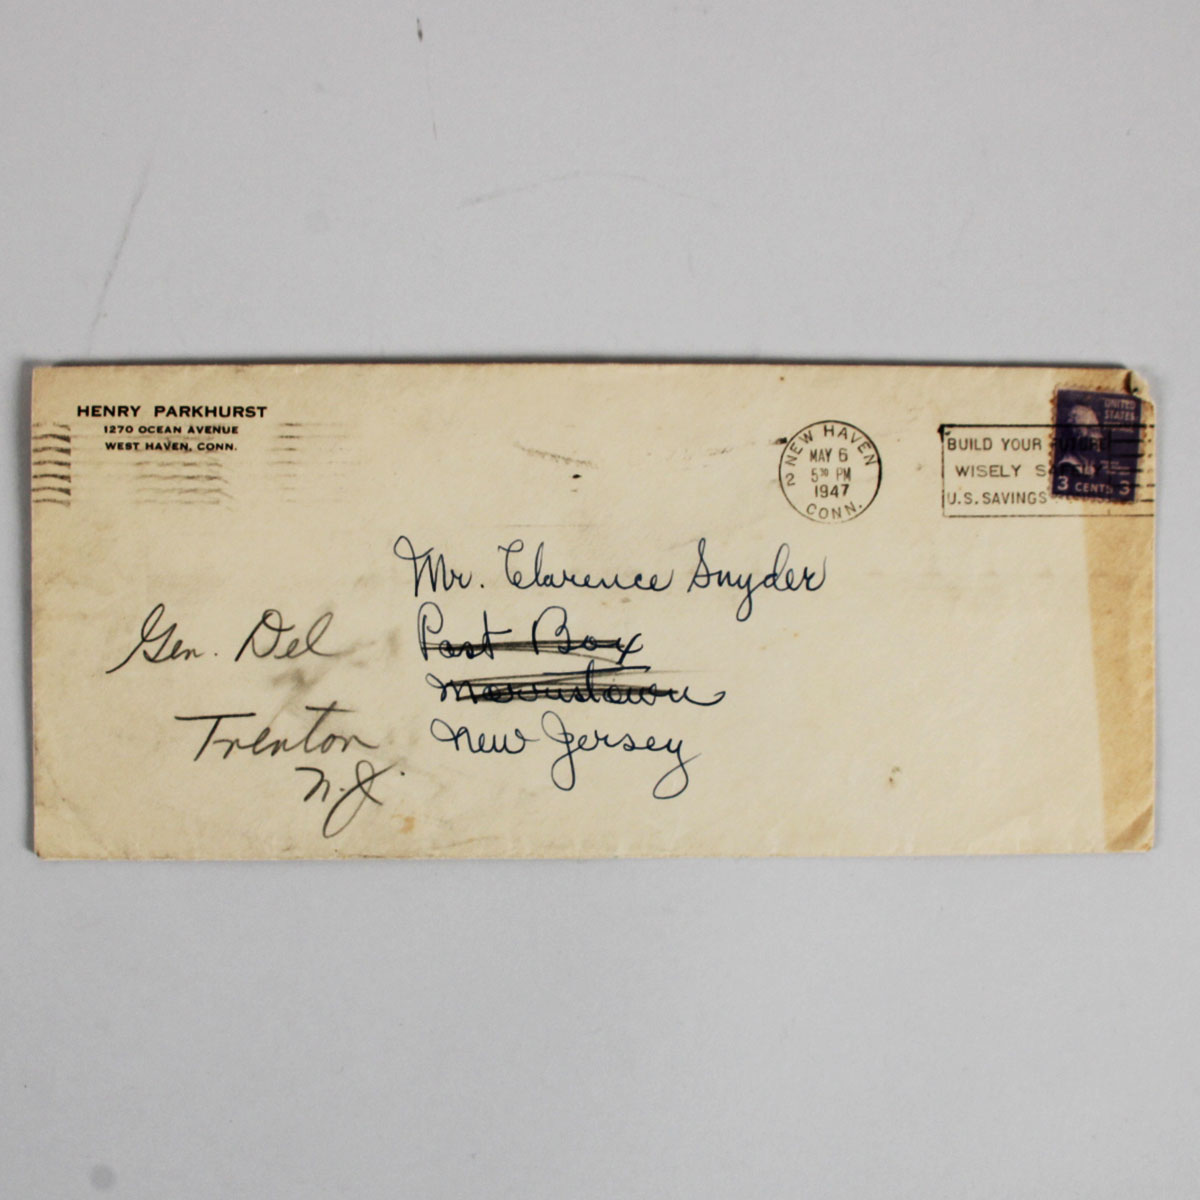 HENRY PARKHURST
1270 OCEAN AVENUE
WEST HAVEN, CONN.
NEW HAVEN
2
MAY 6
5 30 PM
1947
CONN.
BUILD YOUR FUTURE
WISELY SAFELY
U.S. SAVINGS
UNITED
STATES
3 CENTS 3
Mr. Clarence Snyder
Post Box
Morristown
New Jersey
Gen. Del
Trenton
N.J.